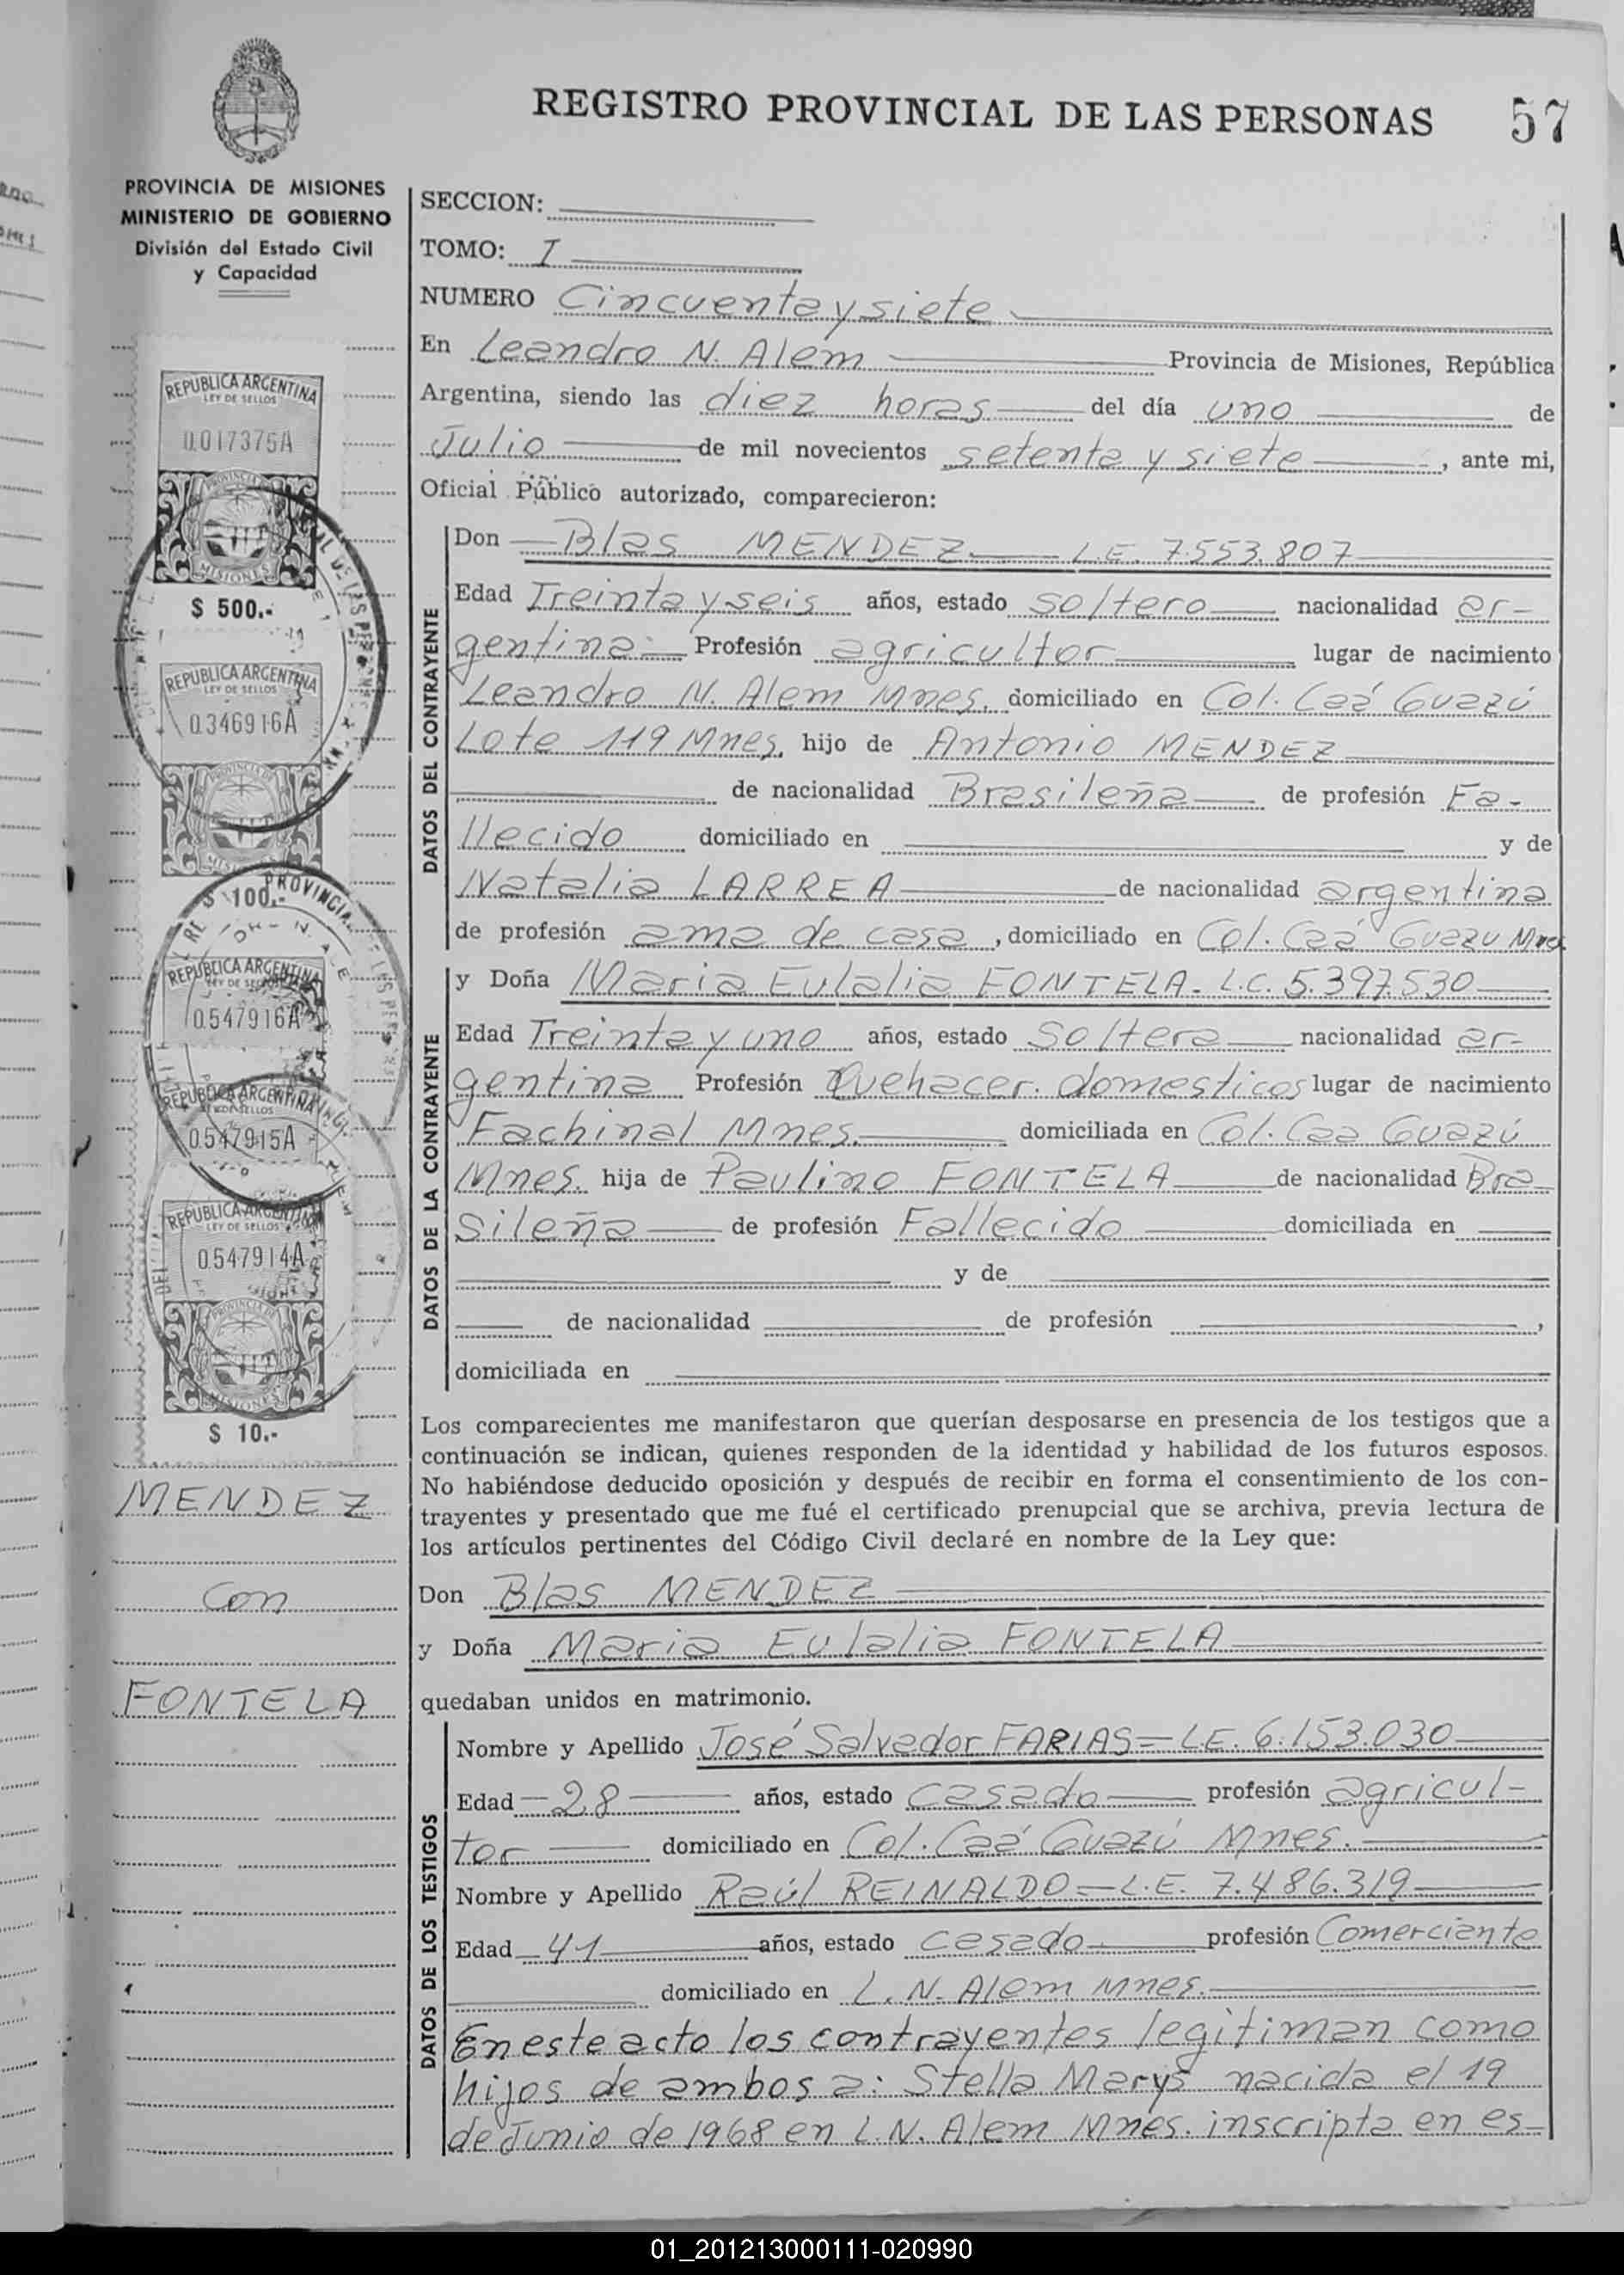 REGISTRO PROVINCIAL DE LAS PERSONAS 57
PROVINCIA DE MISIONES
MINISTERIO DE GOBIERNO
División del Estado Civil
y Capacidad
REPUBLICA ARGENTINA
LEY DE SELLOS
0.017375A
MISIONES
$ 500.-
REPUBLICA ARGENTINA
LEY DE SELLOS
0.346916A
$ 100.-
REPUBLICA ARGENTINA
LEY DE SELLOS
0.547916A
REPUBLICA ARGENTINA
LEY DE SELLOS
0.547915A
REPUBLICA ARGENTINA
LEY DE SELLOS
0.547914A
MISIONES
$ 10.-
MENDEZ
con
FONTELA
SECCION:
TOMO: I
NUMERO Cincuenta y siete
En Leandro N. Alem Provincia de Misiones, República
Argentina, siendo las diez horas del día uno de
Julio de mil novecientos setenta y siete, ante mi,
Oficial Público autorizado, comparecieron:
DATOS DEL CONTRAYENTE
Don Blas MENDEZ L.E. 7.553.807
Edad Treinta y seis años, estado soltero nacionalidad ar-
gentina Profesión agricultor lugar de nacimiento
Leandro N. Alem Mnes, domiciliado en Col. Caá Guazú
Lote 119 Mnes, hijo de Antonio MENDEZ
de nacionalidad Brasileña de profesión Fa-
llecido domiciliado en y de
Natalia LARREA de nacionalidad argentina
de profesión ama de casa, domiciliado en Col. Caá Guazu Mnes
DATOS DE LA CONTRAYENTE
y Doña Maria Eulalia FONTELA - L.C. 5.397.530
Edad Treinta y uno años, estado Soltera nacionalidad ar-
gentina Profesión Quehacer. domesticos lugar de nacimiento
Fachinal Mnes. domiciliada en Col. Caa Guazú
Mnes. hija de Paulino FONTELA de nacionalidad Bra-
sileña de profesión Fallecido domiciliada en
y de
de nacionalidad de profesión ,
domiciliada en
Los comparecientes me manifestaron que querían desposarse en presencia de los testigos que a
continuación se indican, quienes responden de la identidad y habilidad de los futuros esposos.
No habiéndose deducido oposición y después de recibir en forma el consentimiento de los con-
trayentes y presentado que me fué el certificado prenupcial que se archiva, previa lectura de
los artículos pertinentes del Código Civil declaré en nombre de la Ley que:
Don Blas MENDEZ
y Doña Maria Eulalia FONTELA
quedaban unidos en matrimonio.
DATOS DE LOS TESTIGOS
Nombre y Apellido José Salvador FARIAS = L.E. 6.153.030
Edad - 28 años, estado casado profesión agricul-
tor domiciliado en Col. Caá Guazú Mnes.
Nombre y Apellido Raúl REINALDO = L.E. 7.486.319
Edad 41 años, estado casado profesión Comerciante
domiciliado en L. N. Alem Mnes.
En este acto los contrayentes legitiman como
hijos de ambos a: Stella Marys nacida el 19
de Junio de 1968 en L.N. Alem Mnes. inscripta en es-
01_201213000111-020990